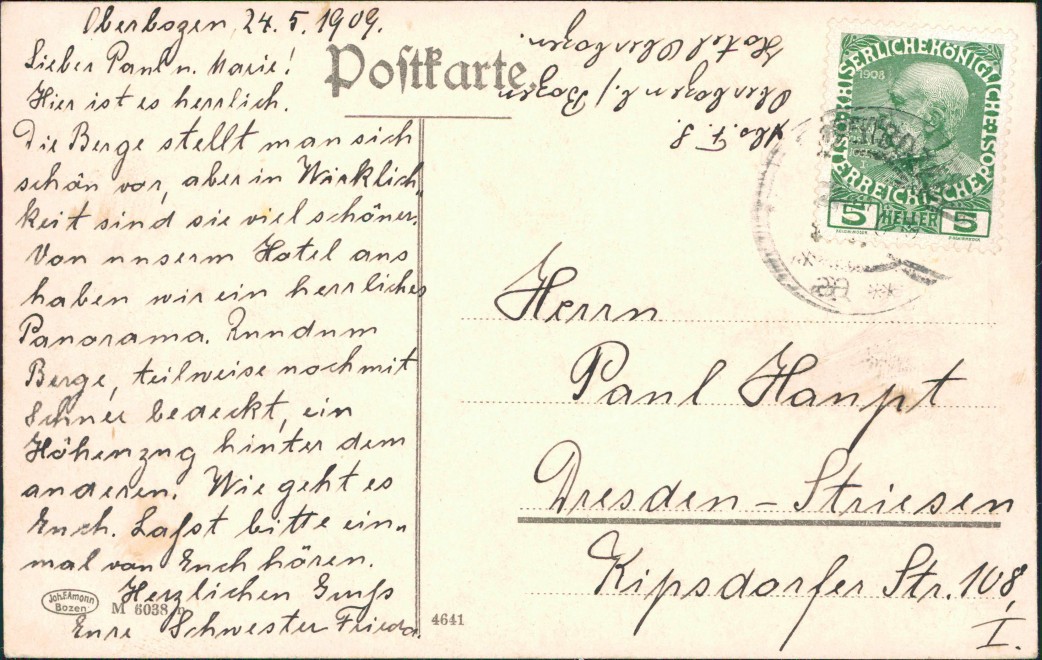 Oberbozen, 24.5.1909.
Lieber Paul u. Marie!
Hier ist es herrlich.
Die Berge stellt man sich
schön vor, aber in Wirklich„
keit sind sie viel schöner.
Von unserm Hotel aus
haben wir ein herrliches
Panorama. Rundum
Berge, teilweise noch mit
Schnee bedeckt, ein
Höhenzug hinter dem
anderen. Wie geht es
Euch. Laßt bitte ein„
mal von Euch hören.
Herzlichen Gruß
Eure Schwester Frieda.
Postkarte.
F. S.
Oberbozen b/ Bozen
Hotel Oberbozen.
KAISERLICHEKÖNIGLICHE
ÖSTERREICHISCHEPOST
1908
5 HELLER 5
Herrn
Paul Haupt
Dresden-Striesen
Kipsdorfer Str. 108,
I.
Joh.F.Amonn
Bozen
M 6038
4641